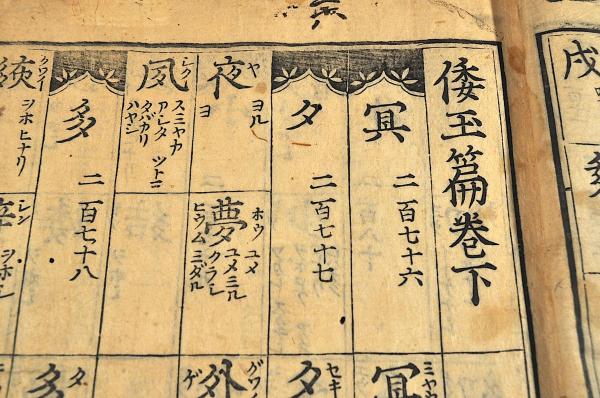 倭玉篇巻下
冥 二百七十六
冥 ミヤウ
夕 二百七十七
夕 セキ
夜 ヤ ヨル ヨ
夢 ホウ ユメ ユメミル クラシ ヒウム ミダル
外 グワイ ゲ
夙 シク スミヤカ アシタ ツトニ ハヤシ
多 二百七十八
多 タ
クワイ ヲホヒナリ